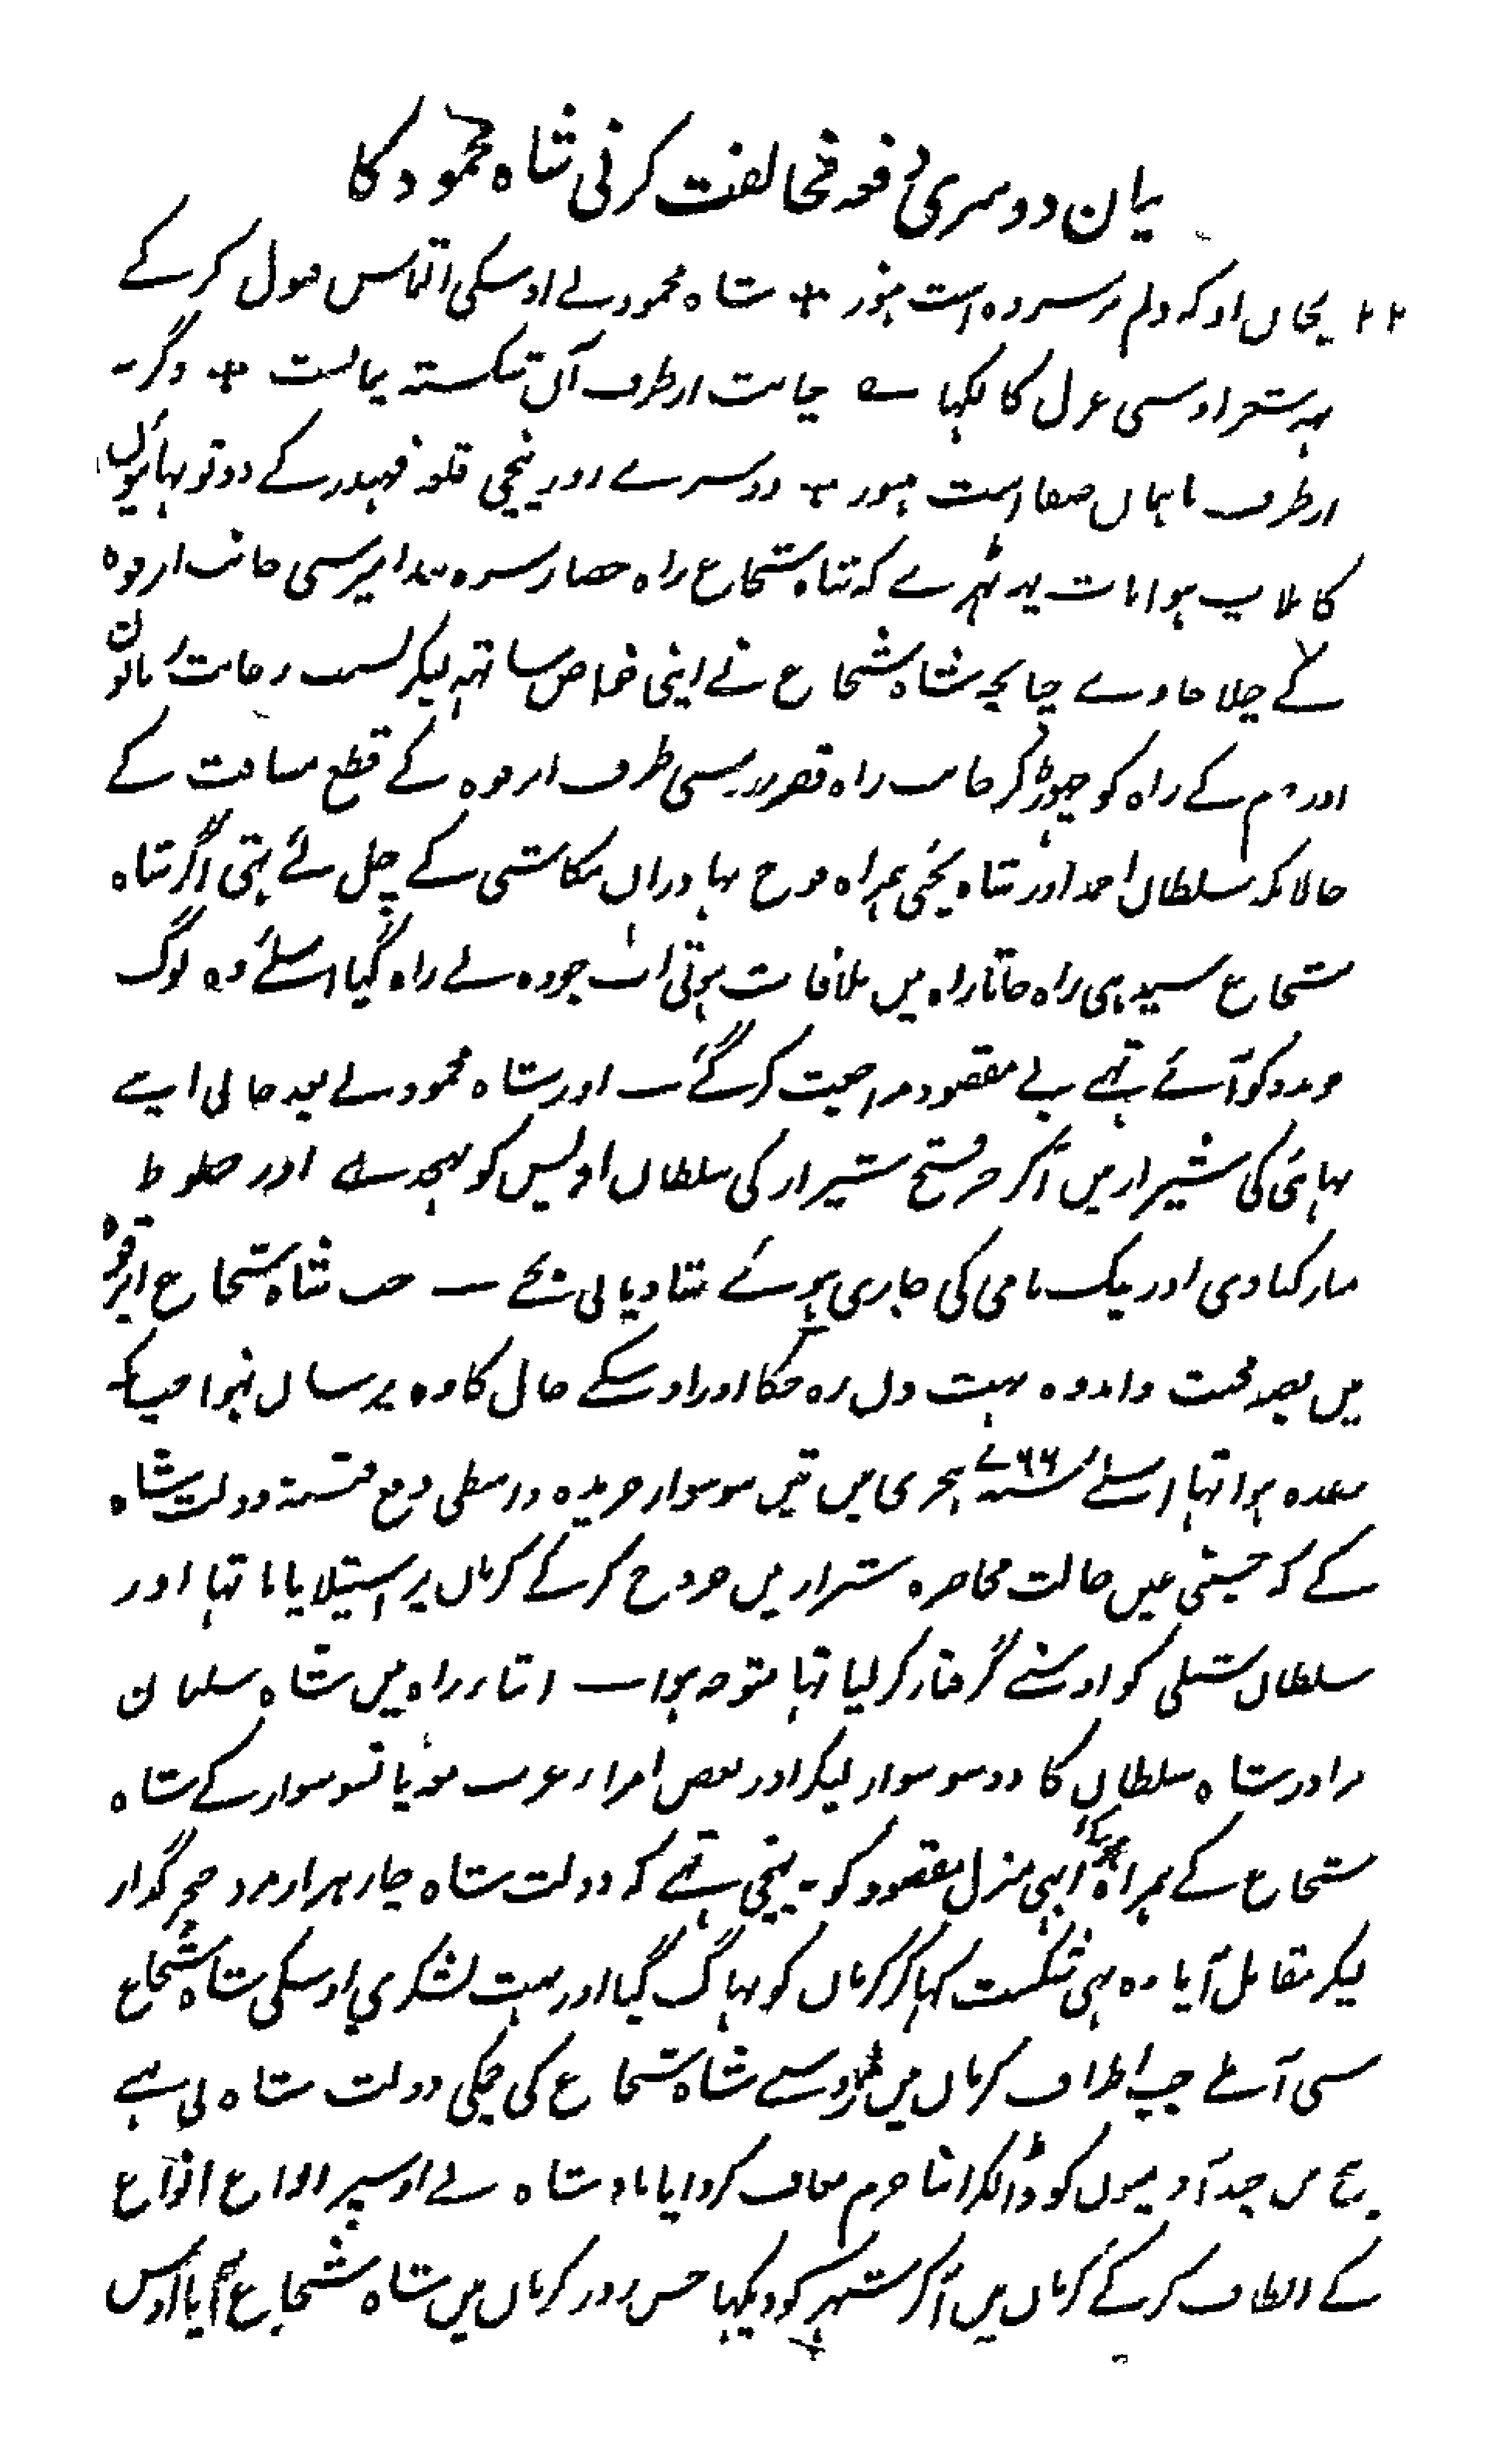 بیان دوسری دفعہ مخالفت کرنی شاہ محمود کا
بجان او کہ دلم بر سر وہ است ہنوز + شاہ محمود نے اوسکی التماس قبول کر کے
یہ شعر اوسی غزل کا لکہا ے جانب از طرف آن شکستہ پیمانست + وگرنہ
از طرف ما ہمان صفا است ہنوز + دوسرے روز نیچی قلعہ قہندر کے دونو بہائیوں
کا ملاپ ہوا بات یہ ٹہرے کہ شاہ شجاع راہ حصار سے جانب ابرقوہ
کے چلا جاوے چنانچہ شاہ شجاع نے اپنی خواص ساتہہ لیکر بسبب رعایت
اور کے راہ کو چہوڑ کر جانب راہ قصر زرد سی طرف ابرقوہ کے قطع مسافت کے
حالانکہ سلطان احمد اور شاہ یحیی ہمراہ فوج بہادران کاشی کے چل نے پہتی اگر شاہ
شجاع سیدہی راہ جاتا راہ میں ملاقات ہوتی اب جو وہ بے راہ گیا اسلئے وہ لوگ
جو مدد کو آئے تہے بے مقصود مراجعت کر گئے ـ اور شاہ محمود نے بعد جانی اپنے
بہائی کی شیراز میں آکر خبر فتح شیراز کی سلطان اویس کو بہیجدے اور خطوط
مبارکبادی اور نیک نامی کی جاری ہوئے شادیانی بجے ـ جب شاہ شجاع ابرقوہ
میں بصد محنت و اندوہ بہت دل رہ چکا اور اوسکے حال کا وہ پرسان نہوا جیسا کہ
وعدہ ہوا تہا اسلئے ۷۶۶ سنہ ہجری میں تین سو سوار جریدہ واسطی دفع فتنہ دولت شاہ
کے کہ جسنی عین حالت محاصرہ شیراز میں خروج کر کے کرمان پر استیلا پایا تہا اور
سلطان شبلی کو اوسنے گرفتار کر لیا تہا متوجہ ہوا ـ اثناء راہ میں شاہ سلیمان
برادر شاہ سلطان کا دو سو سوار لیکر اور بعض امراء عرب معہ پانسو سوار کے شاہ
شجاع کے ہمراہ ہوئے ابہی منزل مقصود کو نہ پہنچی تہے کہ دولت شاہ چار ہزار مرد خنجر گذار
لیکر مقابل آیا وہ بہی شکست کہا کر کرمان کو بہاگ گیا اور بہت لشکری اوسکی شاہ شجاع
سی آملے جب اطراف کرمان میں شاہ شجاع کی چمکی دولت شاہ نی ہے
بیچ میں چند آدمیوں کو ڈالکر اپنا جرم معاف کروایا بادشاہ نے اوسپر انواع انواع
کے الطاف کر کے کرمان میں آکر شہر کو دیکہا جس روز کرمان میں شاہ شجاع آیا اوس